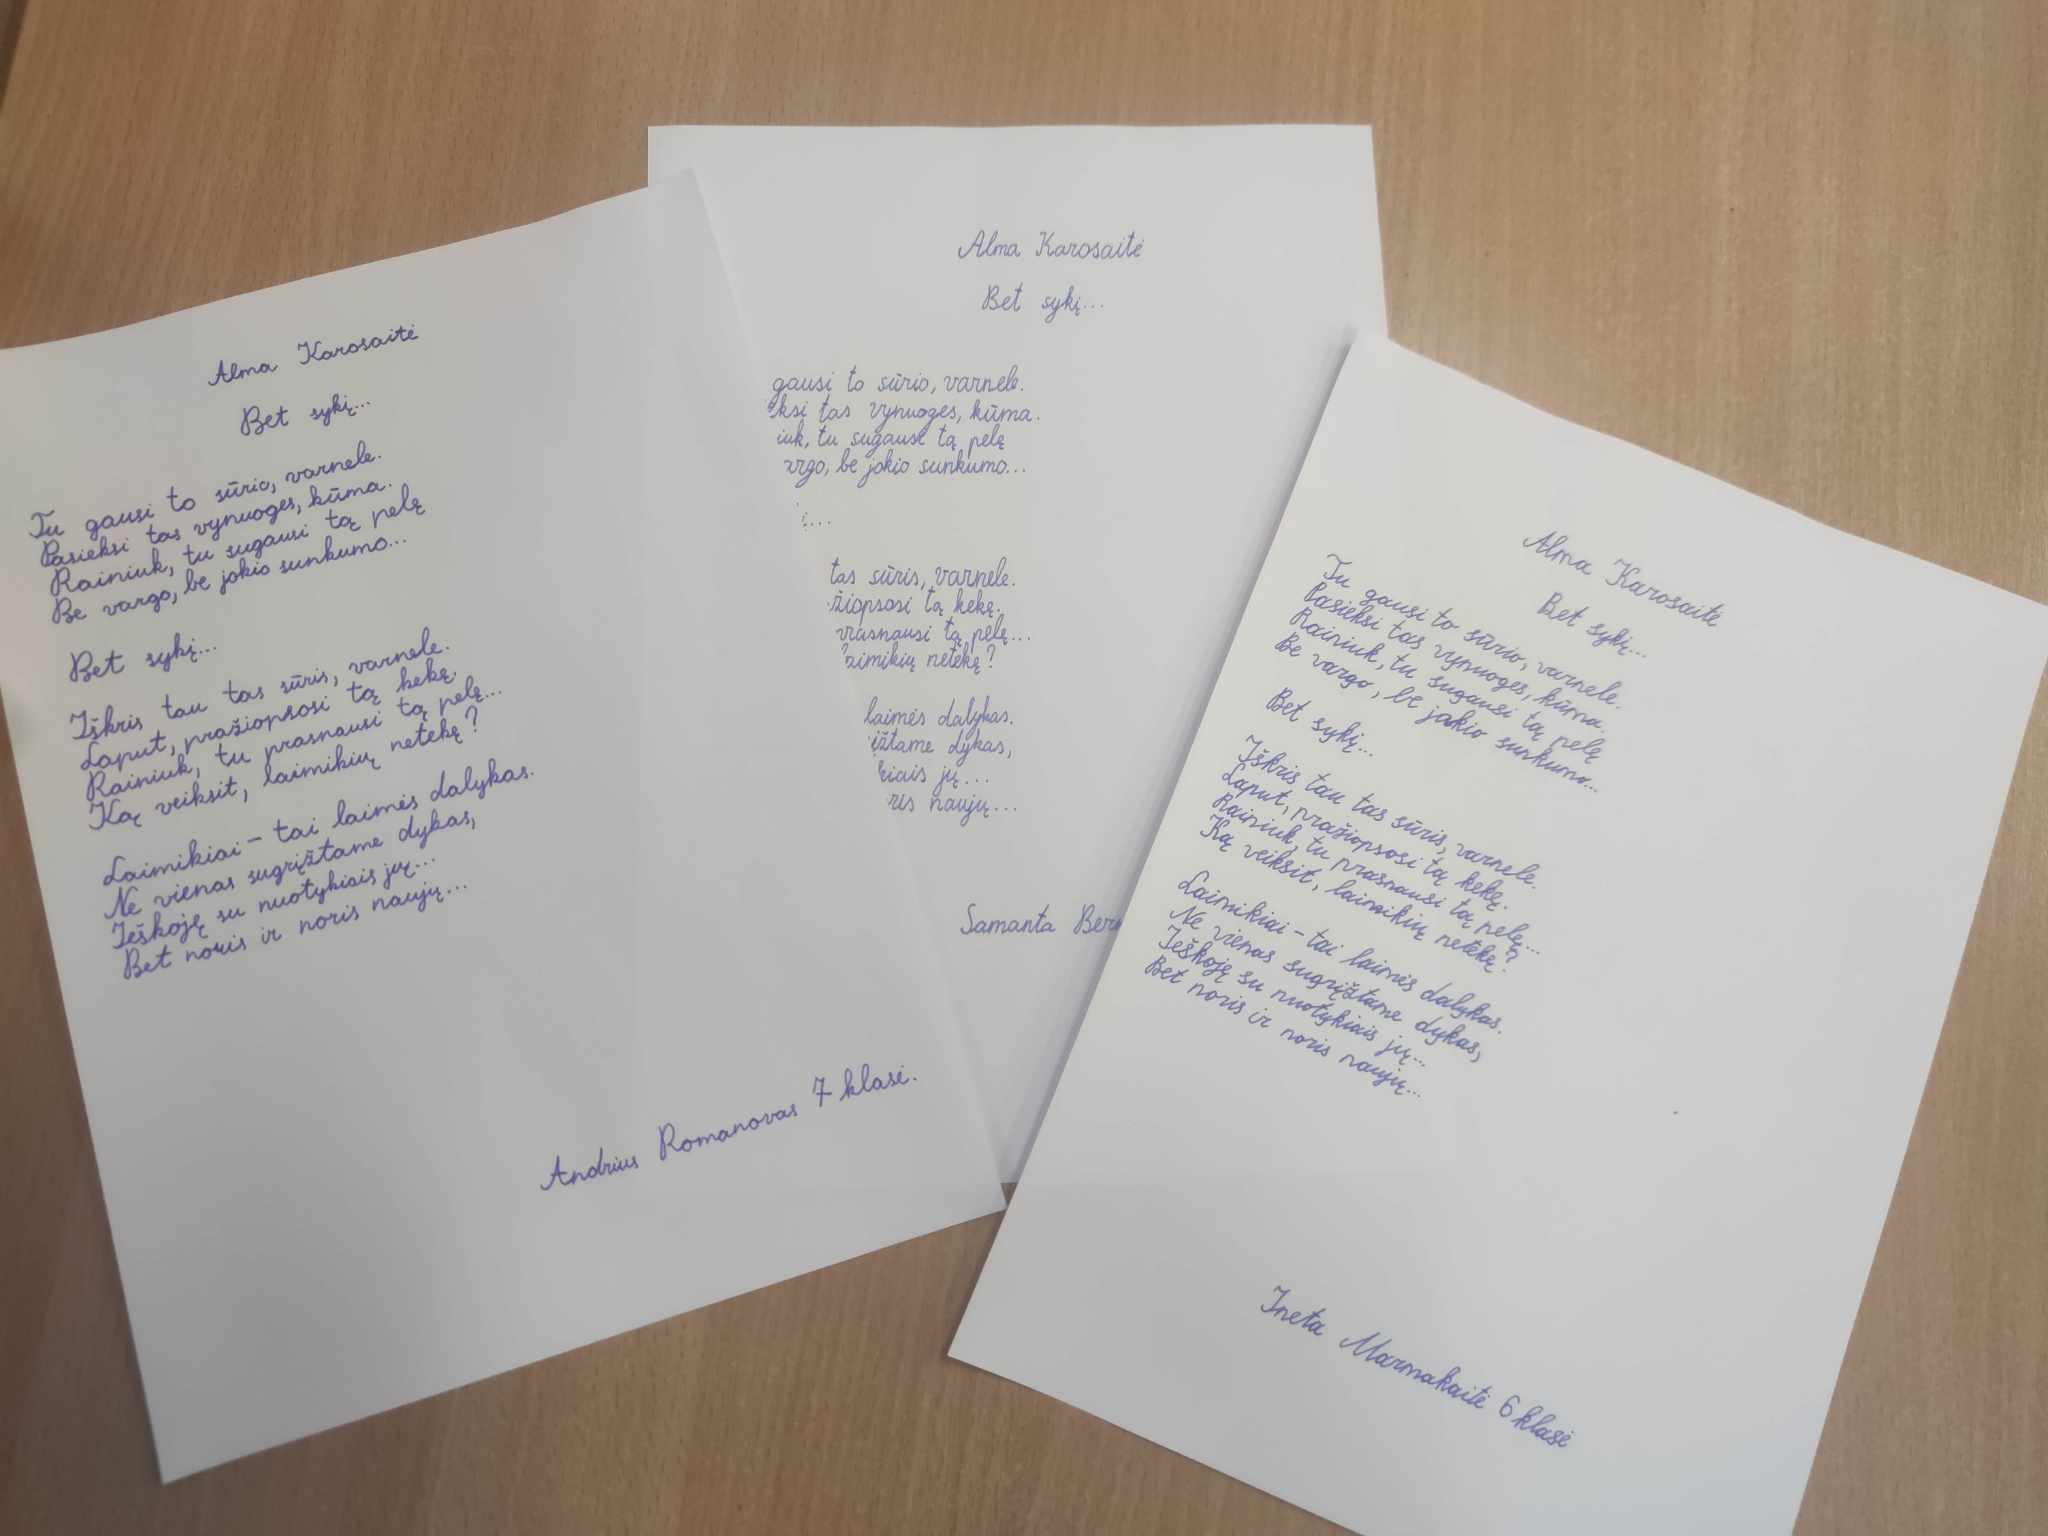 Alma Karosaitė
Bet sykį...
Tu gausi to sūrio, varnele.
Pasieksi tas vynuoges, kūma.
Rainiuk, tu sugausi tą pelę
Be vargo, be jokio sunkumo...
Bet sykį...
Iškris tau tas sūris, varnele.
Laput, pražiopsosi tą kekę.
Rainiuk, tu prasnausi tą pelę...
Ką veiksit, laimikių netekę?
Laimikiai - tai laimės dalykas.
Ne vienas sugrįžtame dykas,
Ieškoję su nuotykiais jų...
Bet noris ir noris naujų...
Andrius Romanovas 7 klasė.
Alma Karosaitė
Bet sykį...
gausi to sūrio, varnele.
ksi tas vynuoges, kūma.
iuk, tu sugausi tą pelę
argo, be jokio sunkumo...
į...
tas sūris, varnele.
žiopsosi tą kekę.
prasnausi tą pelę...
laimikių netekę?
laimės dalykas.
įžtame dykas,
kiais jų...
ris naujų...
Samanta Bern
Alma Karosaitė
Bet sykį...
Tu gausi to sūrio, varnele.
Pasieksi tas vynuoges, kūma.
Rainiuk, tu sugausi tą pelę
Be vargo, be jokio sunkumo...
Bet sykį...
Iškris tau tas sūris, varnele.
Laput, pražiopsosi tą kekę.
Rainiuk, tu prasnausi tą pelę...
Ką veiksit, laimikių netekę?
Laimikiai - tai laimės dalykas.
Ne vienas sugrįžtame dykas,
Ieškoję su nuotykiais jų...
Bet noris ir noris naujų...
Ineta Marmakaitė 6 klasė